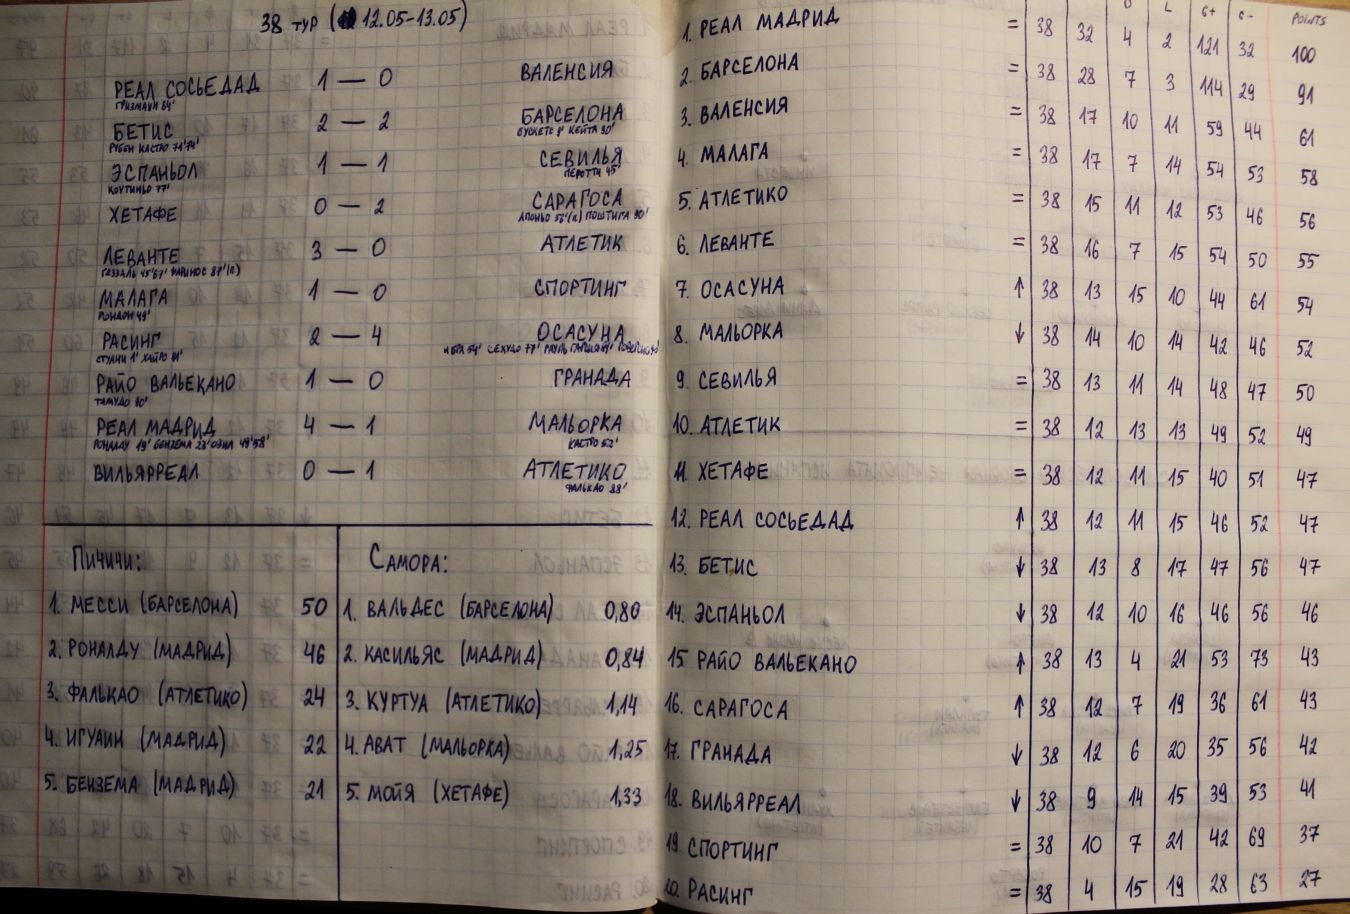 38 ТУР ( 12.05-13.05)
РЕАЛ СОСЬЕДАД 1 — 0 ВАЛЕНСИЯ
ГРИЗМАНН 64'
БЕТИС 2 — 2 БАРСЕЛОНА
РУБЕН КАСТРО 71'74' БУСКЕТС 9' КЕЙТА 90'
ЭСПАНЬОЛ 1 — 1 СЕВИЛЬЯ
КОУТИНЬО 77' ПЕРОТТИ 45'
ХЕТАФЕ 0 — 2 САРАГОСА
АПОНЬО 55'(П) ПОШТИГА 90'
ЛЕВАНТЕ 3 — 0 АТЛЕТИК
ГЕЗЗАЛЬ 45'67' ФАРИНОС 87'(П)
МАЛАГА 1 — 0 СПОРТИНГ
РОНДОН 49'
РАСИНГ 2 — 4 ОСАСУНА
СТУАНИ 1' ХАЙРО 81' 54' СЕХУДО 77' РАУЛЬ ГАРСИЯ
РАЙО ВАЛЬЕКАНО 1 — 0 ГРАНАДА
ТАМУДО 90'
РЕАЛ МАДРИД 4 — 1 МАЛЬОРКА
РОНАЛДУ 19' БЕНЗЕМА 23' ОЗИЛ 49'58' КАСТРО 52'
ВИЛЬЯРРЕАЛ 0 — 1 АТЛЕТИКО
ФАЛЬКАО 88'
ПИЧИЧИ:
1. МЕССИ (БАРСЕЛОНА) 50
2. РОНАЛДУ (МАДРИД) 46
3. ФАЛЬКАО (АТЛЕТИКО) 24
4. ИГУАИН (МАДРИД) 22
5. БЕНЗЕМА (МАДРИД) 21
САМОРА:
1. ВАЛЬДЕС (БАРСЕЛОНА) 0,80
2. КАСИЛЬЯС (МАДРИД) 0,84
3. КУРТУА (АТЛЕТИКО) 1,14
4. АВАТ (МАЛЬОРКА) 1,25
5. МОЙЯ (ХЕТАФЕ) 1,33
D L G+ G- POINTS
1. РЕАЛ МАДРИД = 38 32 4 2 121 32 100
2. БАРСЕЛОНА = 38 28 7 3 114 29 91
3. ВАЛЕНСИЯ = 38 17 10 11 59 44 61
4. МАЛАГА = 38 17 7 14 54 53 58
5. АТЛЕТИКО = 38 15 11 12 53 46 56
6. ЛЕВАНТЕ = 38 16 7 15 54 50 55
7. ОСАСУНА ↑ 38 13 15 10 44 61 54
8. МАЛЬОРКА ↓ 38 14 10 14 42 46 52
9. СЕВИЛЬЯ = 38 13 11 14 48 47 50
10. АТЛЕТИК = 38 12 13 13 49 52 49
11. ХЕТАФЕ = 38 12 11 15 40 51 47
12. РЕАЛ СОСЬЕДАД ↑ 38 12 11 15 46 52 47
13. БЕТИС ↓ 38 13 8 17 47 56 47
14. ЭСПАНЬОЛ ↓ 38 12 10 16 46 56 46
15. РАЙО ВАЛЬЕКАНО ↑ 38 13 4 21 53 73 43
16. САРАГОСА ↑ 38 12 7 19 36 61 43
17. ГРАНАДА ↓ 38 12 6 20 35 56 42
18. ВИЛЬЯРРЕАЛ ↓ 38 9 14 15 39 53 41
19. СПОРТИНГ = 38 10 7 21 42 69 37
20. РАСИНГ = 38 4 15 19 28 63 27